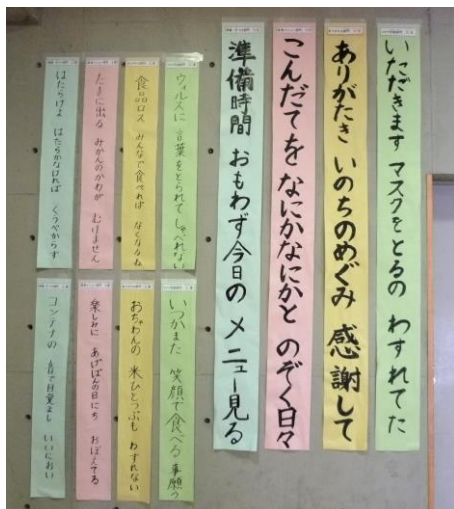 いただきます マスクをとるの わすれてた
ありがたき いのちのめぐみ 感謝して
こんだてを なにかなにかと のぞく日々
準備時間 おもわず今日の メニュー見る
ウィルスに 言葉をとられて しゃべれない
食品ロス みんなで食べれば なくなるね
たまに出る みかんのかわが むけません
はたらけよ はたらかなければ くうべからず
いつかまた 笑顔で食べる 事願う
おちゃわんの 米ひとつぶも わすれない
楽しみに あげぱんの日にち おぼえてる
コンテナの 音で目覚まし いいにおい